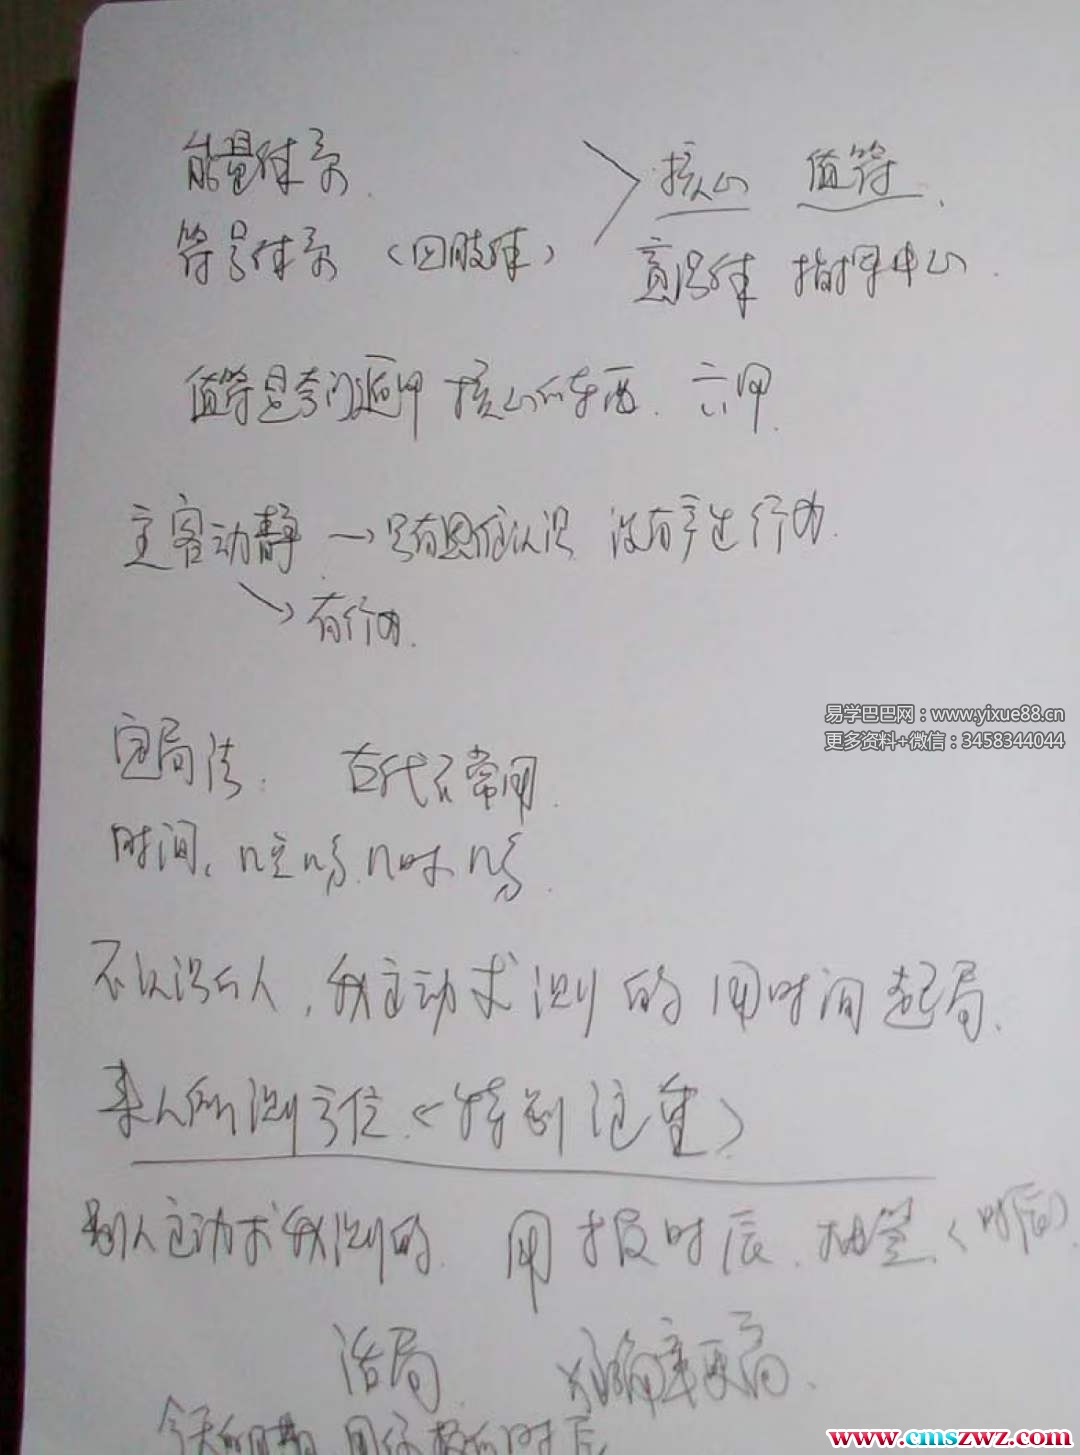 能量体系
核心 值符
符号体系(四肢体)
意识体 指挥中心
值符是奇门遁甲核心的东西.六甲.
主客动静→只有思维认识 没有产生行为.
→有行为.
定局法: 古代不常用.
时间.
不认识的人,我主动求测的用时间起局.
来人所测方位.<特别注重>
别人主动求我测的. 用报时辰.抽签<时辰>
活局. 准确率更高.
今天的日期 用你报的时辰
易学巴巴网:www.yixue88.cn
更多资料+微信:3458344044
www.cmszwz.com